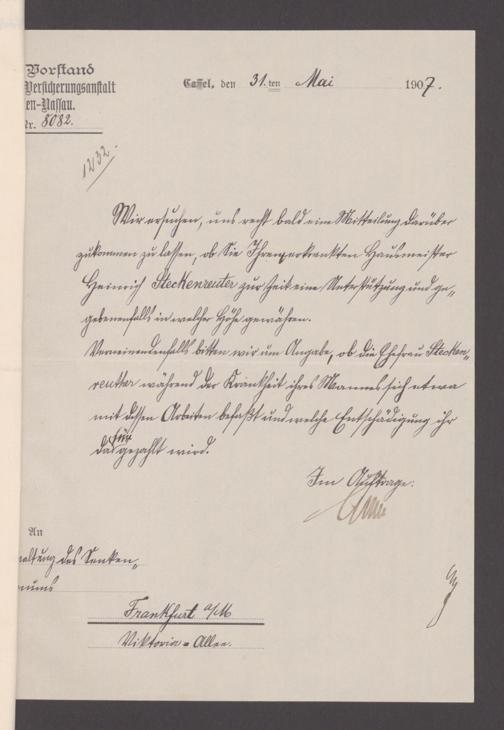 Vorstand
Versicherungsanstalt
en-Nassau.
Nr. 8082.
Cassel, den 31.ten Mai 1907.
1232.
Wir ersuchen, uns recht bald eine Mitteilung darüber
zukommen zu lassen, ob Sie Ihrem erkrankten Hausmeister
Heinrich Steckenreuter zur Zeit eine Unterstützung und ge-
gebenenfalls in welcher Höhe gewähren.
Verneinendenfalls bitten wir um Angabe, ob die Ehefrau Stecken-
reuter während der Krankheit ihres Mannes sich etwa
mit dessen Arbeiten befaßt und welche Entschädigung ihr
dafür gezahlt wird.
Im Auftrage:
An
waltung des Senken-
museums
Frankfurt a/M
Viktoria-Allee.